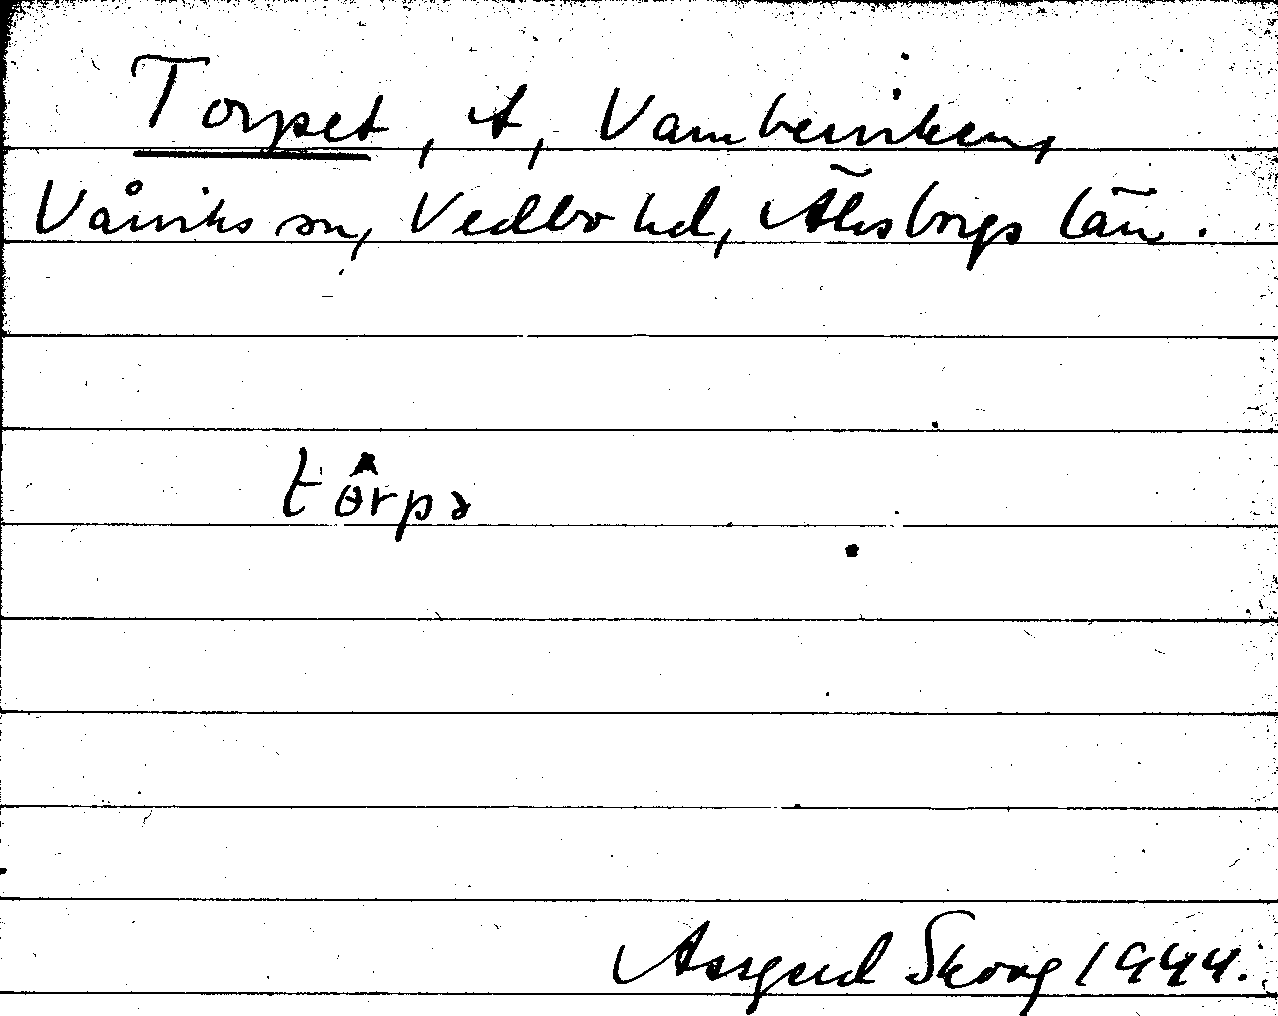 Torpet, t, Vambersviken,
Vårviks sn, Vedbo hd, Älvsborgs län.
tɵ̂rpə
Assgerd Skoog 1944.